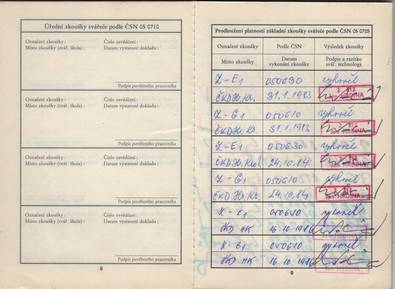 Úřední zkoušky svářeče podle ČSN 05 0710
Označení zkoušky :
Číslo osvědčení :
Místo zkoušky (svář. škola) :
Datum vystavení dokladu :
Podpis pověřeného pracovníka
Označení zkoušky :
Číslo osvědčení :
Místo zkoušky (svář. škola) :
Datum vystavení dokladu :
Podpis pověřeného pracovníka
Označení zkoušky :
Číslo osvědčení :
Místo zkoušky (svář. škola) :
Datum vystavení dokladu :
Podpis pověřeného pracovníka
Označení zkoušky :
Číslo osvědčení :
Místo zkoušky (svář. škola) :
Datum vystavení dokladu :
Podpis pověřeného pracovníka
8
Prodloužení platnosti základní zkoušky svářeče podle ČSN 05 0705
Označení zkoušky
Podle ČSN
Výsledek zkoušky
Místo zkoušky
Datum vykonání zkoušky
Podpis a razítko svář. technologa
Z-E1 050630 vyhověl
31.1.1983
Z-G1 050610 vyhověl
31.1.1983
Z-E1 050630 vyhověl
24.10.84
Z-G1 050610 vyhověl
24.10.84
050610 vyhověl
ČKD HK 16.10.1986
050610 vyhověl
ČKD HK 16.10.1986
9